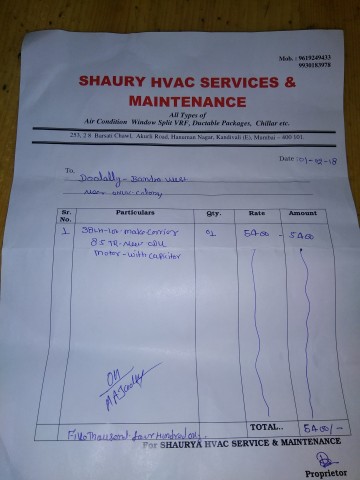 Mob. : 9619249433
9930183978
SHAURY HVAC SERVICES &
MAINTENANCE
All Types of
Air Condition Window Split VRF, Ductable Packages, Chillar etc.
253, 2 8 Barsati Chawl, Akurli Road, Hanuman Nagar, Kandivali (E), Mumbai - 400 101.
Date : 01-12-18
To,
Doolally - Bandra West
Near colony
Sr. No. Particulars Qty. Rate Amount
1 make carrier 01 5400 - 5400
8.5 TR - New ODU
motor - with capicitor
TOTAL.. 5400/-
Five Thousand four Hundred only.
For SHAURYA HVAC SERVICE & MAINTENANCE
Proprietor